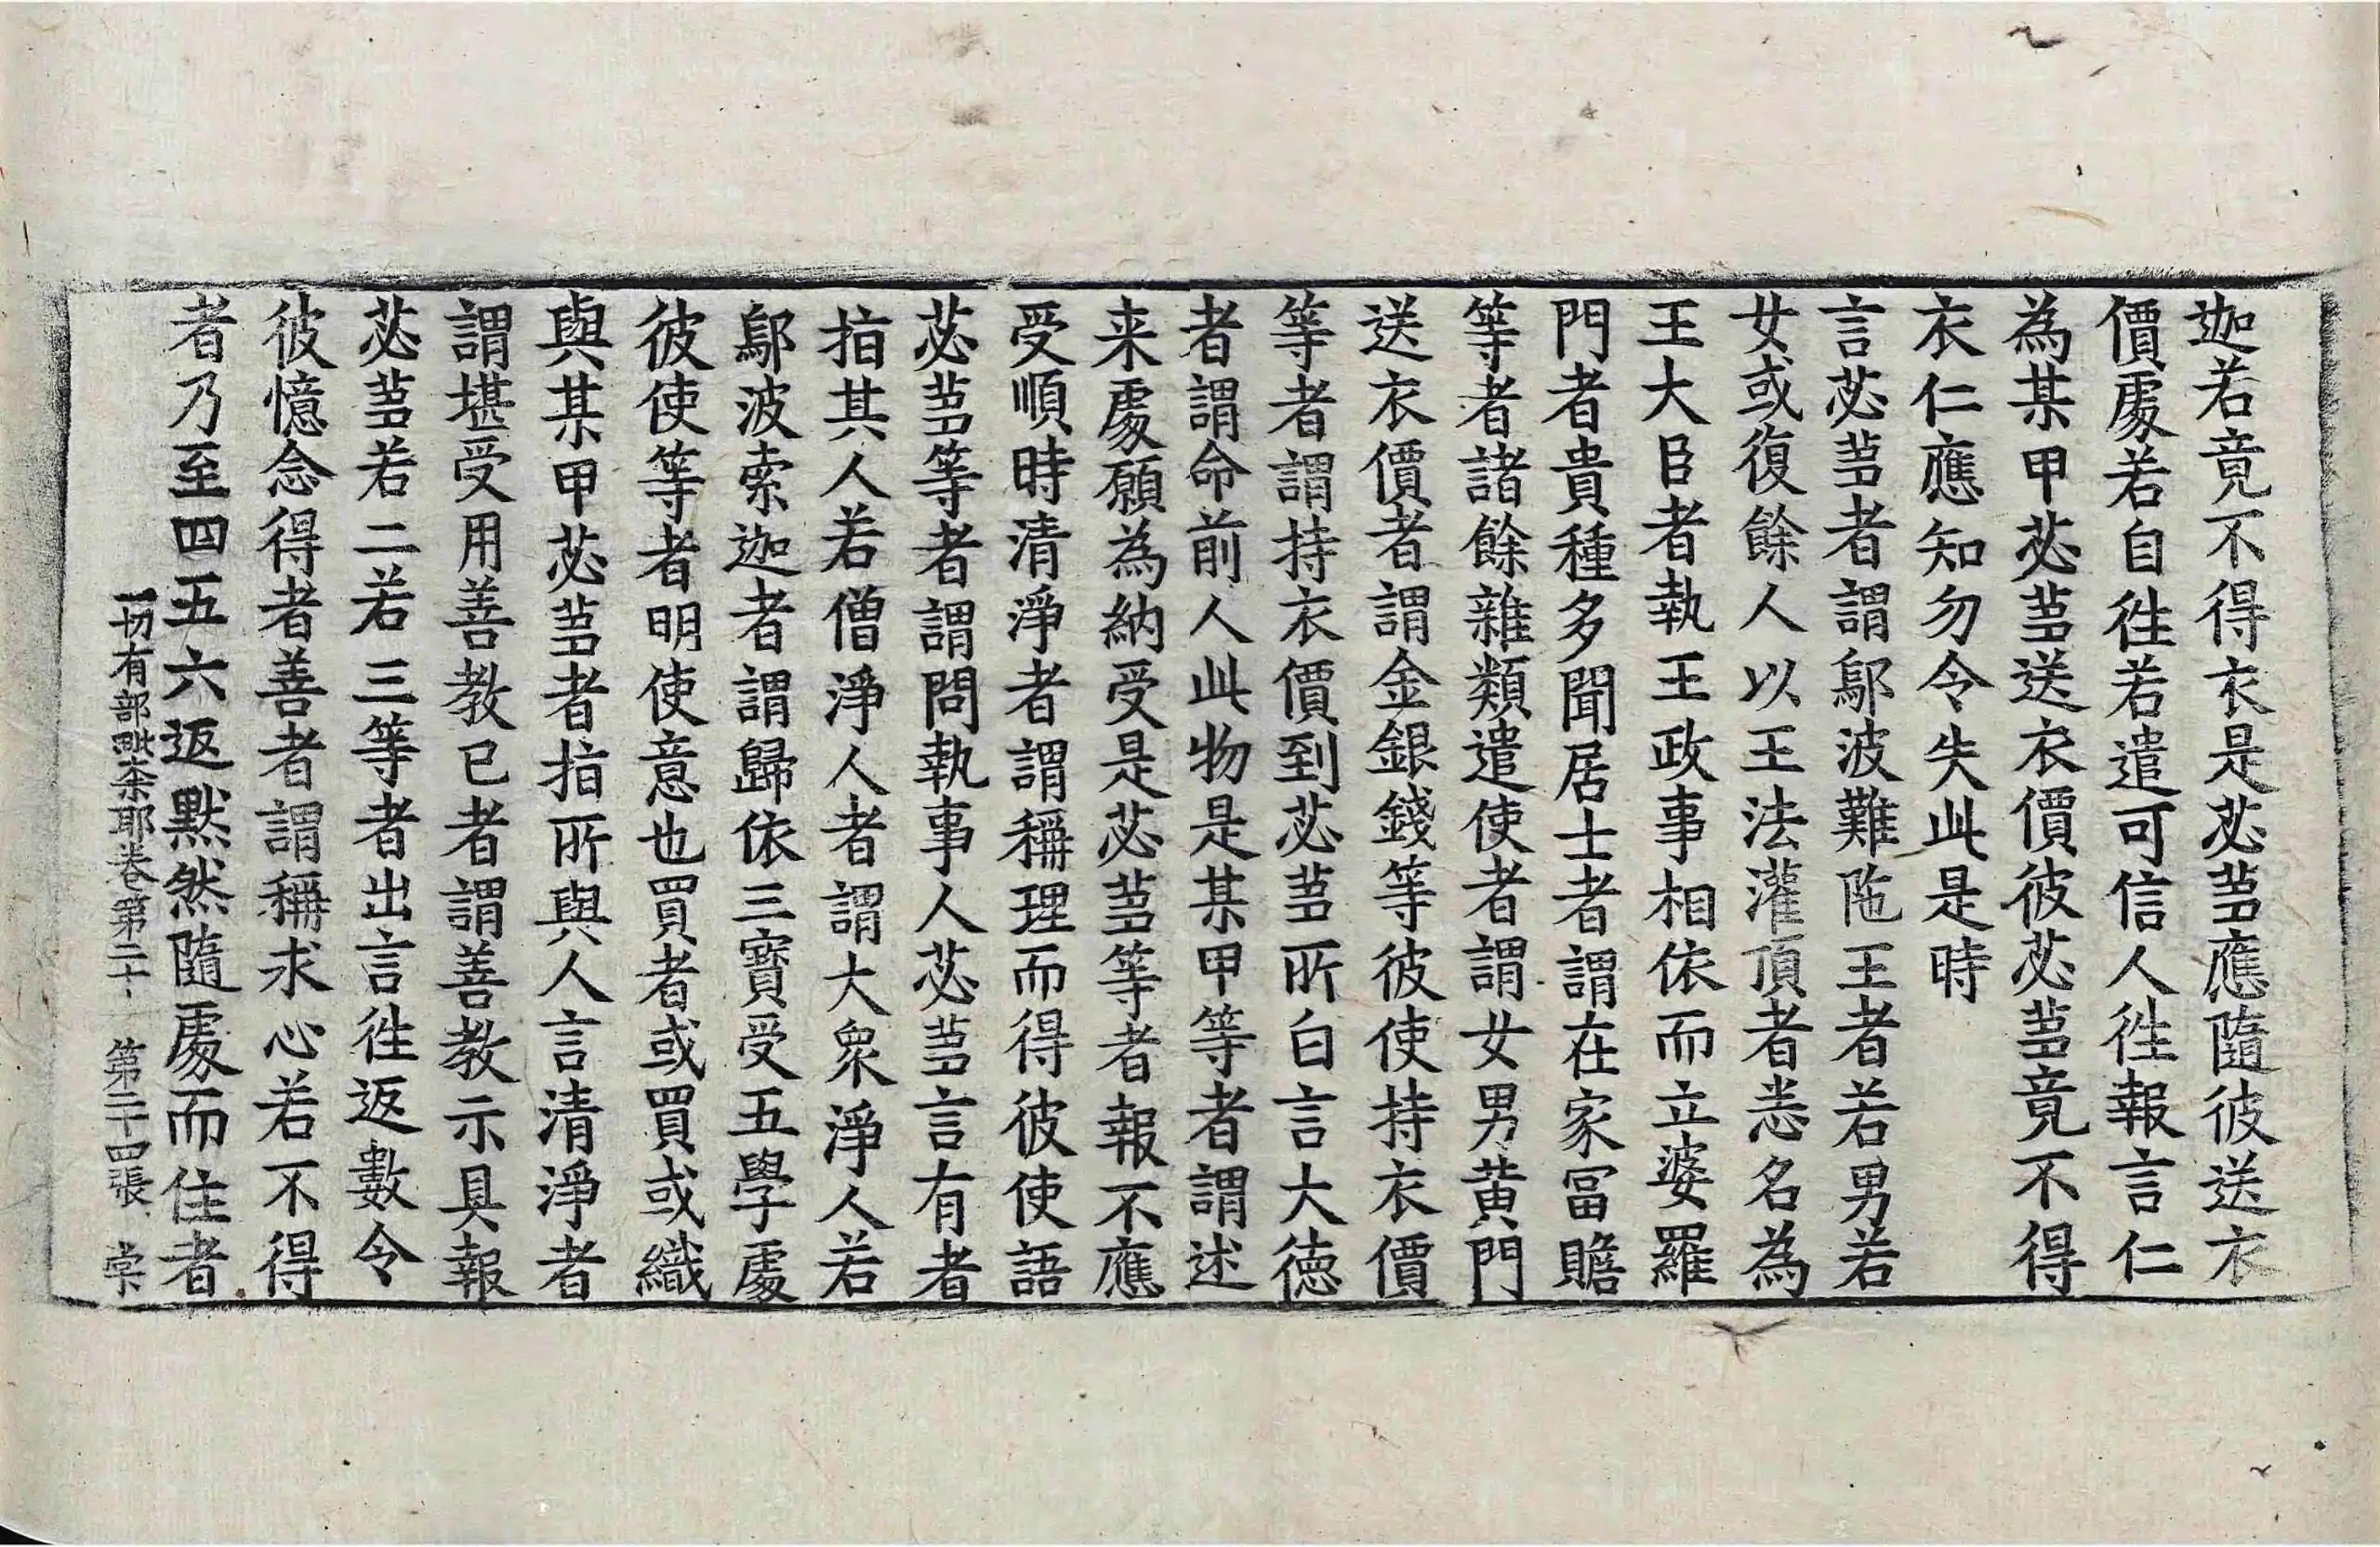 迦若竟不得衣是苾蒭應隨彼送衣
價處若自徃若遣可信人徃報言仁
為某甲苾蒭送衣價彼苾蒭竟不得
衣仁應知勿令失此是時
言苾蒭者謂鄔波難陁王者若男若
女或復餘人以王法灌頂者悉名為
王大臣者執王政事相依而立婆羅
門者貴種多聞居士者謂在家冨贍
等者諸餘雜類遣使者謂女男黄門
送衣價者謂金銀錢等彼使持衣價
等者謂持衣價到苾蒭所白言大徳
者謂命前人此物是某甲等者謂述
来處願為納受是苾蒭等者報不應
受順時清淨者謂稱理而得彼使語
苾蒭等者謂問執事人苾蒭言有者
指其人若僧淨人者謂大衆淨人若
鄔波索迦者謂歸依三寳受五學處
彼使等者明使意也買者或買或織
與某甲苾蒭者指所與人言清淨者
謂堪受用善教已者謂善教示具報
苾蒭若二若三等者出言徃返數令
彼憶念得者善者謂稱求心若不得
者乃至四五六返默然隨處而住者
一切有部毗柰耶卷第二十 第二十四張 棠